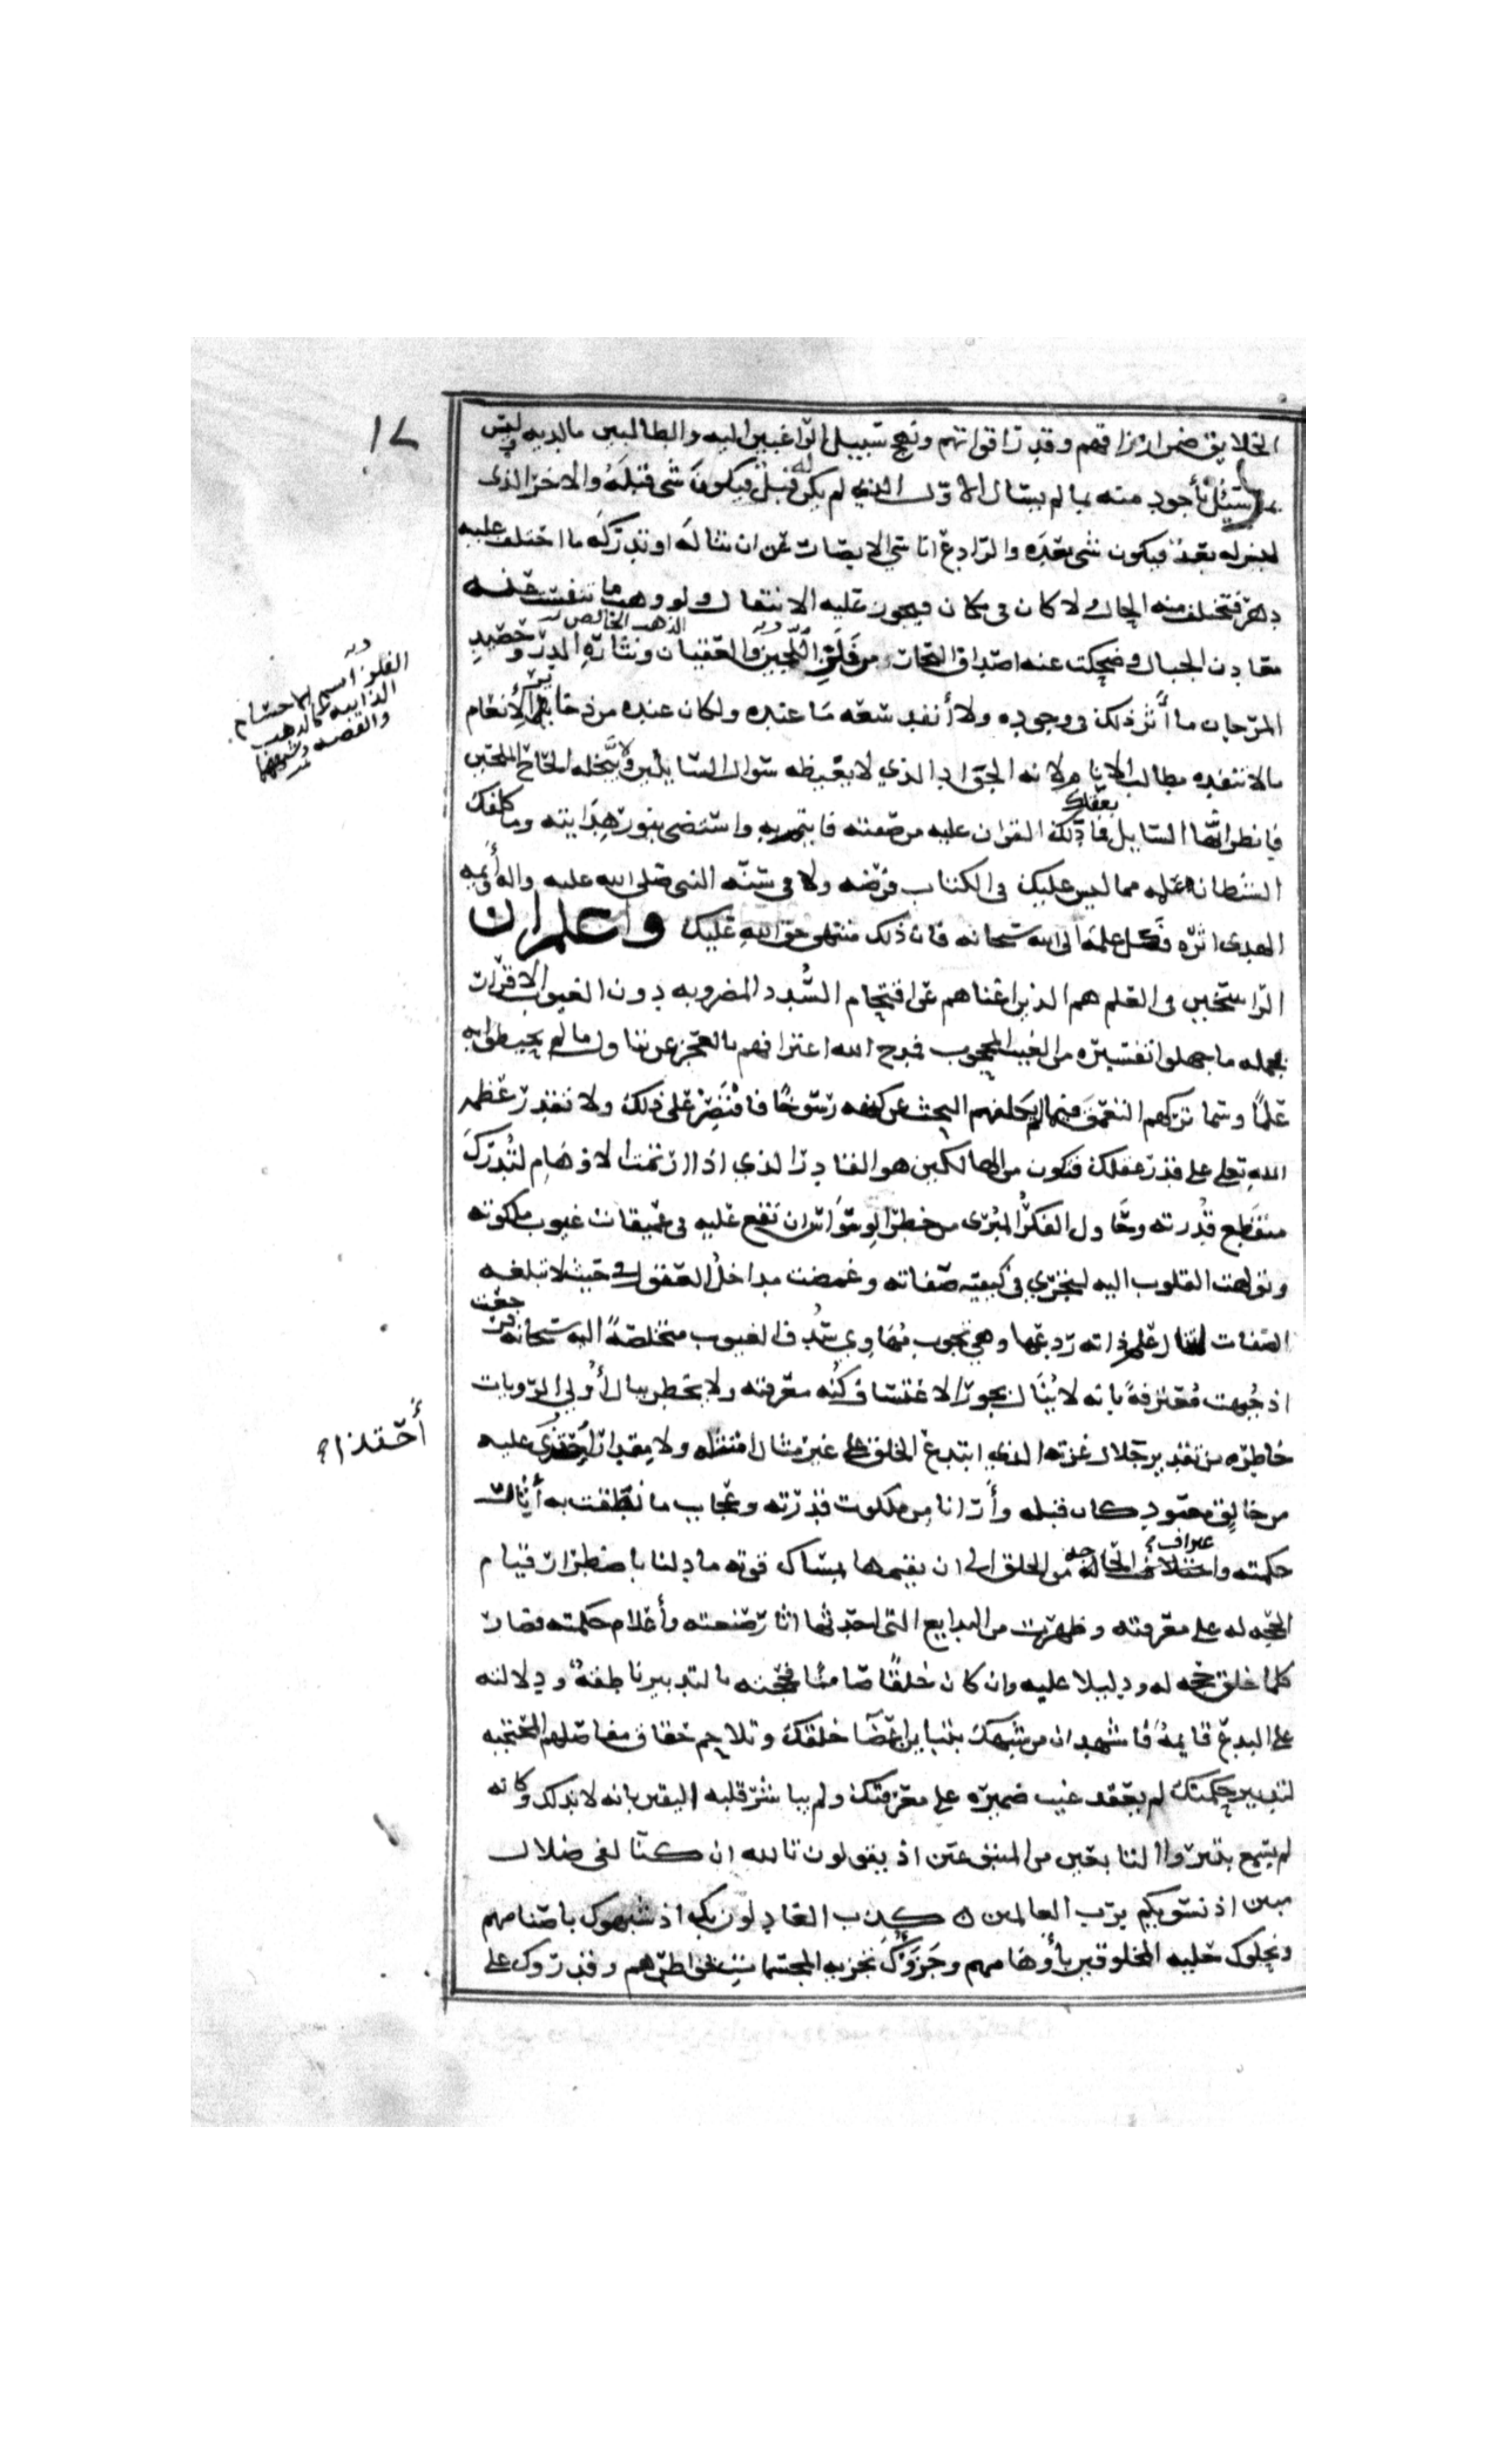 الخلايق ضمن ارزاقهم وقدر اقواتهم ونهج سبيل الراغبين اليه والطالبين مالديه وليس
بما سئل بأجود منه بما لم يسال الاول الذي لم يكن له قبل فيكون شي قبله والاخر الذي
ليس له بعد فيكون شي بعده والرادع اناسي الابصار عن ان تناله او تدركه ما اختلف عليه
دهر فتختلف منه الحال ولا كان في مكان فيجوز عليه الانتقال ولو وهب ما تنفست عنه
معادن الجبال وضحكت عنه اصداف البحار من فلز اللجين والعقيان ونثارة الدر وحصيد
الذهب الخالص
المرجان ما أثر ذلك في وجوده ولا أنفد سعة ما عنده ولكان عنده من ذخاير الأنعام
مالا تنفده مطالب الانام لانه الجواد الذي لا يغيضه سوال السايلين ولا يبخله الحاح الملحين
فانظر ايها السايل بعقلك فما دلك القران عليه من صفته فايتم به واستضئ بنور هدايته وما كلفك
الشيطان علمه مما ليس عليك في الكتاب فرضه ولا في سنة النبي صلى الله عليه واله وأئمة
الهدى اثره فكل علمه الى الله سبحانه فان ذلك منتهى حق الله عليك واعلم ان
الراسخين في العلم هم الذين اغناهم عن اقتحام السدد المضروبه دون الغيوب الاقرار
بجملة ما جهلوا تفسيره من الغيب المحجوب فمدح الله اعترافهم بالعجز عن تناول ما لم يحيطوا به
علما وسما تركهم التعمق فيما لم يكلفهم البحث عن كنهه رسوخا فاقتصر على ذلك ولا تقدر عظمة
الله تعلى على قدر عقلك فتكون من الهالكين هو القادر الذي اذا ارتمت الاوهام لتدرك
منقطع قدرته وحاول الفكر المبرى من خطر الوسواس ان يقع عليه في عميقات غيوب ملكوته
وتولهت القلوب اليه لتجري في كيفية صفاته وغمضت مداخل العقول في حيث لا تبلغه
الصفات لتنال علم ذاته ردعها وهي تجوب مهاوي سدف الغيوب متخلصة اليه سبحانه فرجعت
اذ جبهت معترفة بانه لا ينال بجور الاعتساف كنه معرفته ولا يخطر ببال أولي الرويات
خاطره من تقدير جلال عزته الذي ابتدع الخلق على غير مثال امتثله ولا مقدار احتذى عليه
من خالق معبود كان قبله وأرانا من ملكوت قدرته وعجايب ما نطقت به أثار
حكمته واعتراف الحاجه من الخلق الى ان يقيمها بمساك قوته ما دلنا باضطرار قيام
الحجه له على معرفته وظهرت من البدايع التي احدثها اثار صنعته وأعلام حكمته فصار
كلما خلق حجه له ودليلا عليه وان كان خلقا صامتا فحجته بالتدبير ناطقة ودلالته
على المبدع قايمة فاشهد ان من شبهك بتباين اعضا خلقك وتلاحم حقاق مفاصلهم المحتجبه
لتدبير حكمتك لم يعقد غيب ضميره على معرفتك ولم يباشر قلبه اليقين بانه لا ند لك وكانه
لم يسمع بتبروا التابعين من المتبوعين اذ يقولون تالله ان كنا لفي ضلال
مبين اذ نسويكم برب العالمين كذب العادلون بك اذ شبهوك باصنامهم
ونحلوك حلية المخلوقين بأوهامهم وجزوك تجزية المجسمات بخواطرهم وقدروك على
الفلز اسم لما حشام
الذايبه كالذهب
والفضه
أحتذا